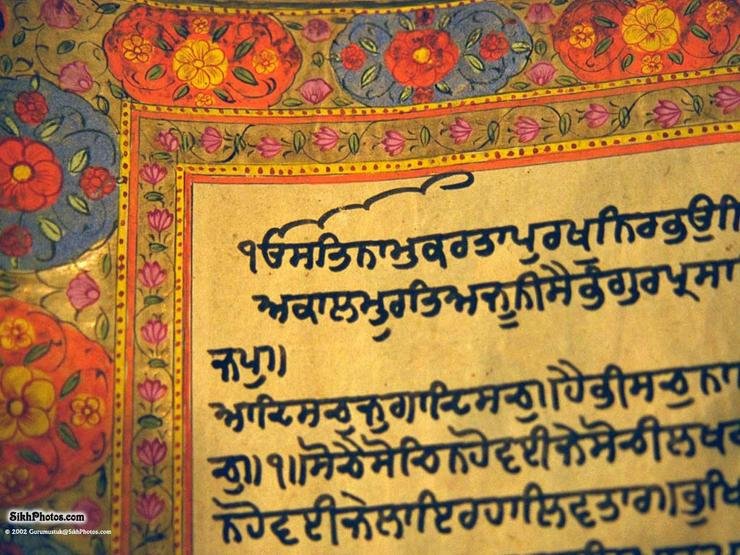 ੴਸਤਿਨਾਮੁਕਰਤਾਪੁਰਖੁਨਿਰਭਉਨਿ
ਅਕਾਲਮੂਰਤਿਅਜੂਨੀਸੈਭੰਗੁਰਪ੍ਰਸਾ
ਜਪੁ॥
ਆਦਿਸਚੁਜੁਗਾਦਿਸਚੁ॥ਹੈਭੀਸਚੁਨਾ
ਚੁ॥੧॥ਸੋਚੈਸੋਚਿਨਹੋਵਈਜੇਸੋਚੀਲਖਵ
ਨਹੋਵਈਜੇਲਾਇਰਹਾਲਿਵਤਾਰ॥ਭੁਖਿ
SikhPhotos.com
© 2002 Gurumustuk@SikhPhotos.com